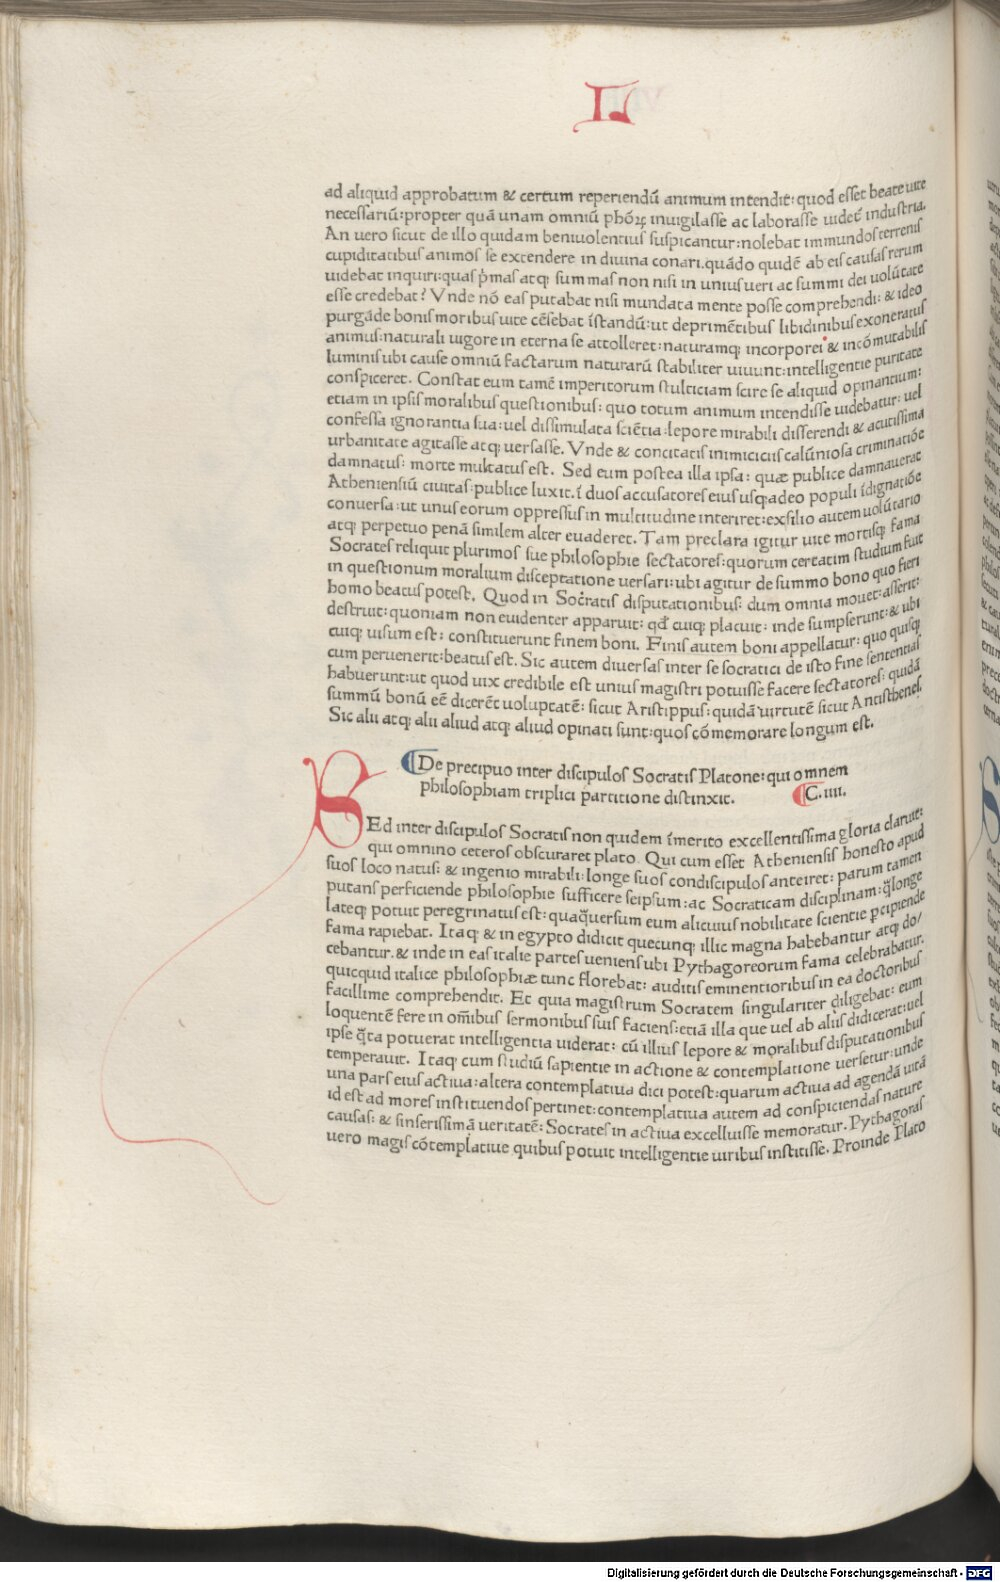 L
ad aliquid approbatum & certum reperiendū animum intendit: quod esset beate uite
necessariū: propter quā unam omniū phoꝝ inuigilasse ac laborasse uidet̄ industria.
An uero sicut de illo quidam beniuolentius suspicantur: nolebat immundos terrenis
cupiditatibus animos se extendere in diuina conari. quādo quidē ab eis causas rerum
uidebat inquiri: quas p̄mas atq; summas non nisi in unius ueri ac summi dei uolūtate
esse credebat? Vnde nō eas putabat nisi mundata mente posse comprehendi: & ideo
purgāde bonis moribus uite cēsebat īstandū: ut deprimētibus libidinibus exoneratus
animus: naturali uigore in eterna se attolleret: naturamq; incorporei & incōmutabilis
luminis ubi cause omniū factarum naturarū stabiliter uiuunt: intelligentie puritate
conspiceret. Constat eum tamē imperitorum stulticiam scire se aliquid opinantium:
etiam in ipsis moralibus questionibus: quo totum animum intendisse uidebatur: uel
confessa ignorantia sua: uel dissimulata sciētia: lepore mirabili disserendi & acutissima
urbanitate agitasse atq; uersasse. Vnde & concitatis inimiciciis calūniosa criminatiōe
damnatus: morte multatus est. Sed eum postea illa ipsa: quæ publice damnauerat
Atheniensiū ciuitas: publice luxit. ī duos accusatores eius usq; adeo populi īdignatiōe
conuersa: ut unus eorum oppressus in multitudine interiret: exsilio autem uolūtario
atq; perpetuo penā similem alter euaderet. Tam preclara igitur uite mortisq; fama
Socrates reliquit plurimos sue philosophie sectatores: quorum certatim studium fuit
in questionum moralium disceptatione uersari: ubi agitur de summo bono quo fieri
homo beatus potest. Quod in Socratis disputationibus: dum omnia mouet: asserit:
destruit: quoniam non euidenter apparuit: qđ cuiq; placuit: inde sumpserunt: & ubi
cuiq; uisum est: constituerunt finem boni. Finis autem boni appellatur: quo quisq;
cum peruenerit: beatus est. Sic autem diuersas inter se socratici de isto fine sententias
habuerunt: ut quod uix credibile est unius magistri potuisse facere sectatores: quidā
summū bonū eē dicerēt uoluptatē: sicut Aristippus: quidā uirtutē sicut Antisthenes.
Sic alii atq; alii aliud atq; aliud opinati sunt: quos cōmemorare longum est.
De precipuo inter discipulos Socratis Platone: qui omnem
philosophiam triplici partitione distinxit. C. iiii.
SEd inter discipulos Socratis non quidem īmerito excellentissima gloria claruit:
qui omnino ceteros obscuraret plato. Qui cum esset Atheniensis honesto apud
suos loco natus: & ingenio mirabili: longe suos condiscipulos anteiret: parum tamen
putans perficiende philosophie sufficere seipsum: ac Socraticam disciplinam: q̄ longe
lateq; potuit peregrinatus est: quaq̄uersum eum alicuius nobilitate scientie ꝑcipiende
fama rapiebat. Itaq; & in egypto didicit quecunq; illic magna habebantur atq; do/
cebantur. & inde in eas italie partes ueniens ubi Pythagoreorum fama celebrabatur.
quicquid italice philosophiæ tunc florebat: auditis eminentioribus in ea doctoribus
facillime comprehendit. Et quia magistrum Socratem singulariter diligebat: eum
loquentē fere in om̄ibus sermonibus suis faciens: etiā illa que uel ab aliis didicerat: uel
ipse q̄ta potuerat intelligentia uiderat: cū illius lepore & moralibus disputationibus
temperauit. Itaq; cum studiū sapientie in actione & contemplatione uersetur: unde
una pars eius actiua: altera contemplatiua dici potest: quarum actiua ad agendā uitā
id est ad mores instituendos pertinet: contemplatiua autem ad conspiciendas nature
causas: & sinserissimā ueritatē: Socrates in actiua excelluisse memoratur. Pythagoras
uero magis cōtemplatiue quibus potuit intelligentie uiribus institisse. Proinde Plato
Digitalisierung gefördert durch die Deutsche Forschungsgemeinschaft - DFG